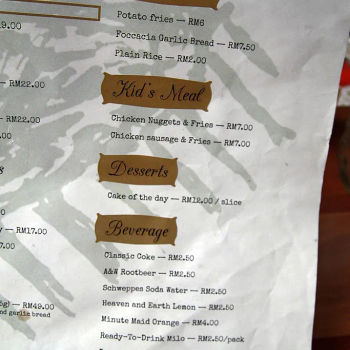 9.00
RM22.00
RM22.00
.00
s
0
— RM17.00
7.00
g) — RM49.00
and garlic bread
.00
Potato fries — RM6
Foccacia Garlic Bread — RM7.50
Plain Rice — RM2.00
Kid's Meal
Chicken Nuggets & Fries — RM7.00
Chicken sausage & Fries — RM7.00
Desserts
Cake of the day — RM12.00 / slice
Beverage
Classic Coke — RM2.50
A&W Rootbeer — RM2.50
Schweppes Soda Water — RM2.50
Heaven and Earth Lemon — RM2.50
Minute Maid Orange — RM4.00
Ready-To-Drink Milo — RM2.50/pack